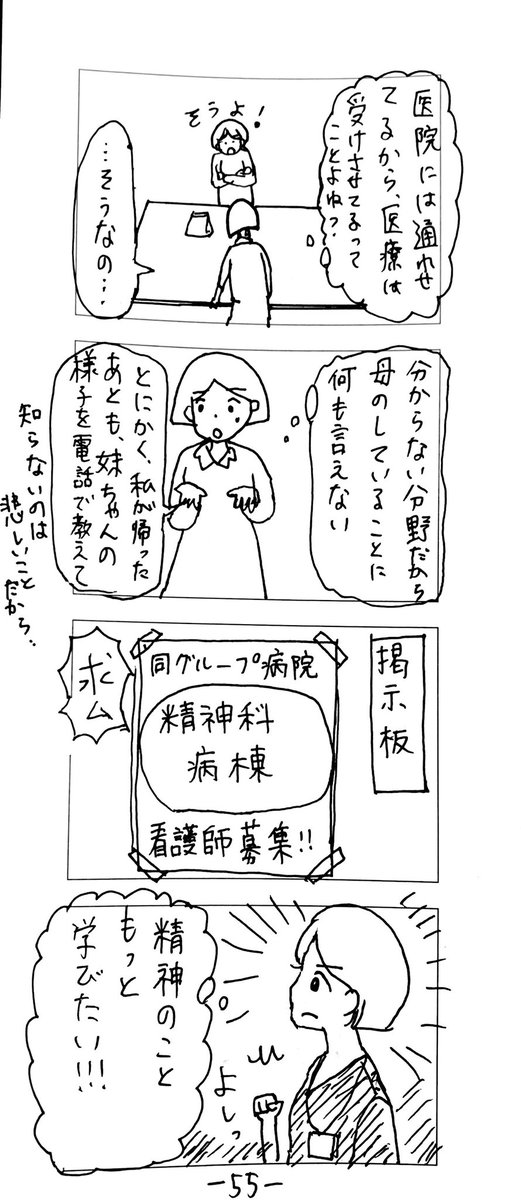 医院には通わせ
てるから、医療は
受けさせてるって
ことよね?
そうよ!
…そうなの…
分からない分野だから
母のしていることに
何も言えない
とにかく、私が帰った
あとも、妹ちゃんの
様子を電話で教えて
知らないのは
悲しいこと
だから。
掲示板
同グループ病院
精神科
病棟
看護師募集!!
求ム
精神のこと
もっと
学びたい!!!
よしっ
-55-